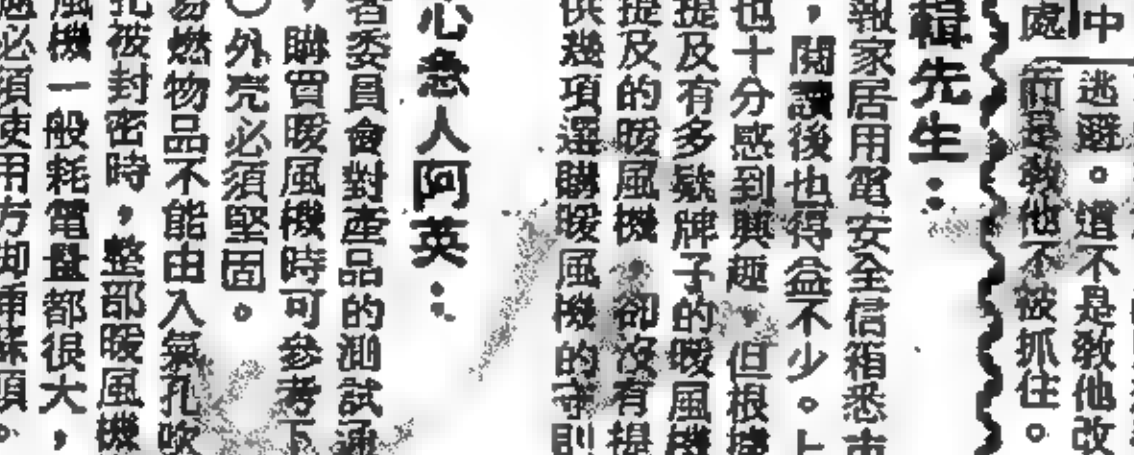 中逃避。這不是教他改
處而是教他不被抓住。
輯先生：
報家居用電安全信箱悉市
，閱讀後也得益不少。上
也十分感到興趣，但根據
提及有多款牌子的暖風機
提及的暖風機，卻沒有提
供幾項選購暖風機的守則
心急人阿英：
者委員會對產品的測試通
，購買暖風機時可參考下
外壳必須堅固。
易燃物品不能由入氣孔吹
孔被封密時，整部暖風機
風機一般耗電量都很大，
處必須使用方